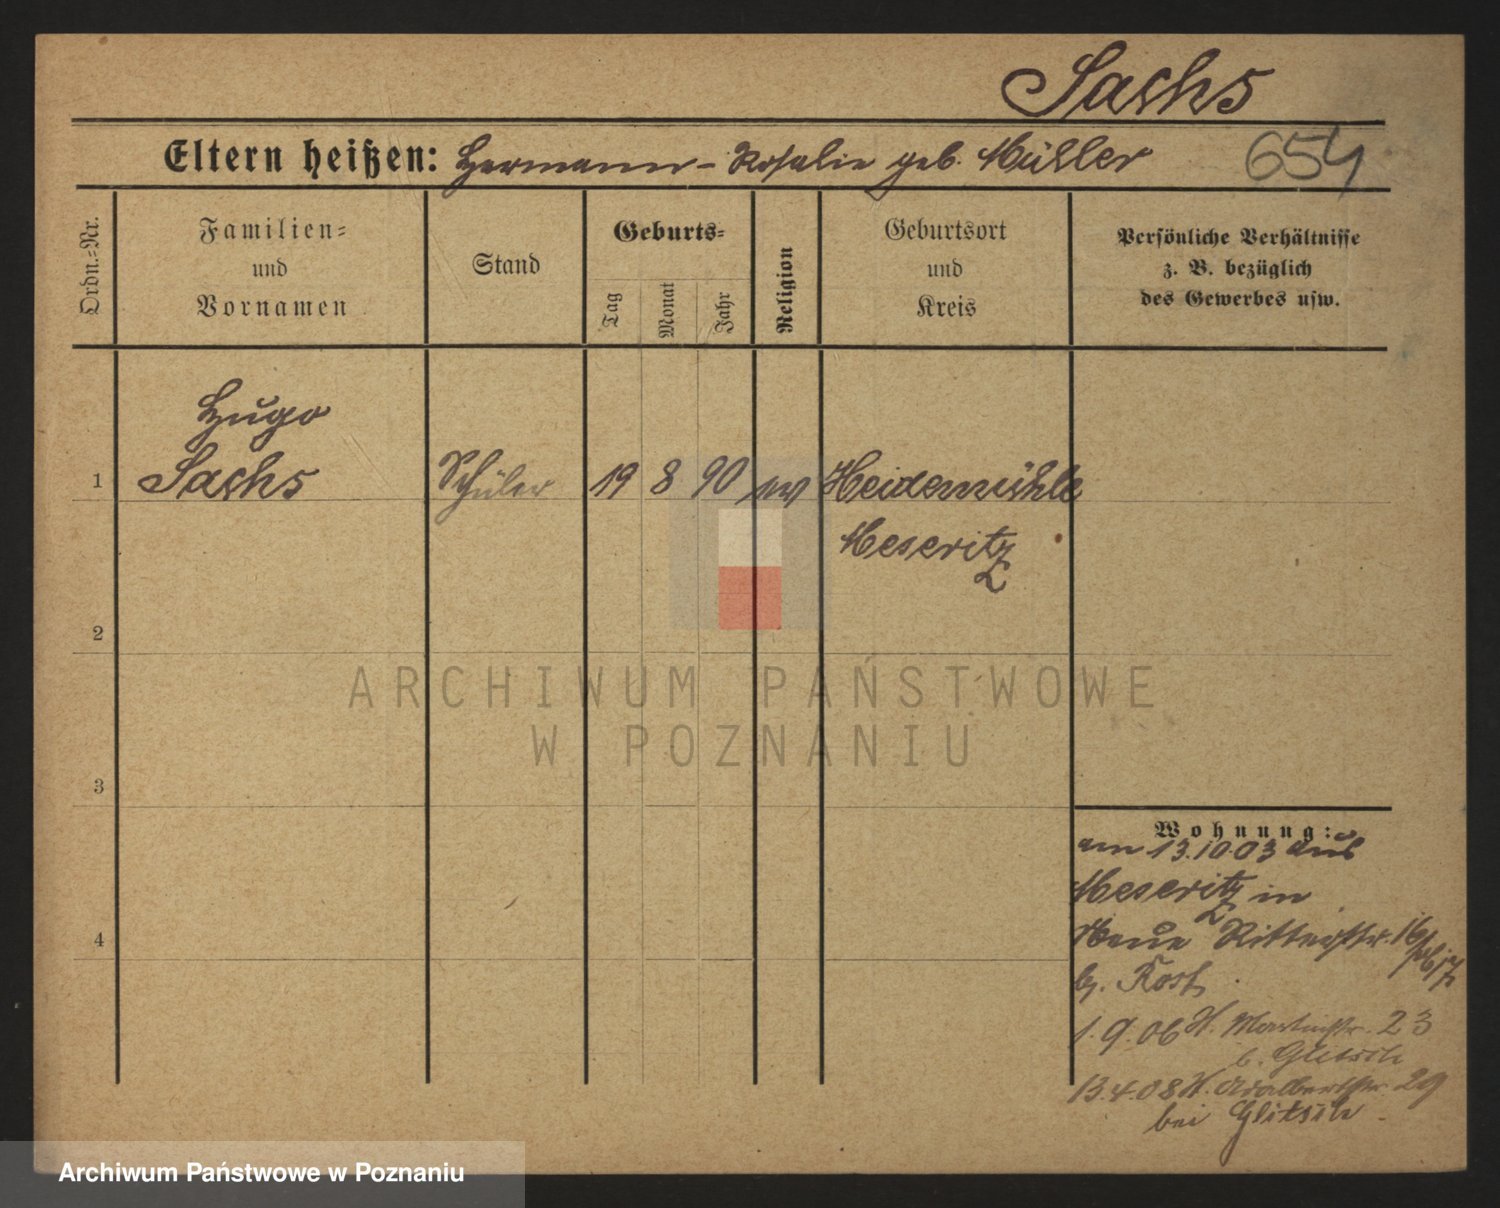 Sachs
Eltern heißen: Hermann - Rosalie geb. Müller 654
Ordn.-Nr.
Familien-
und
Vornamen
Stand
Geburts-
Tag
Monat
Jahr
Religion
Geburtsort
und
Kreis
Persönliche Verhältnisse
z. B. bezüglich
des Gewerbes usw.
Hugo
1 Sachs Schüler 19 8 90 ev Heidemühle
Meseritz
2
3
4
Wohnung:
am 13.10.03 aus
Meseritz in
Neue Ritterstr. 16
b. Kost
1.9.06 St. Martinstr. 23
b. Glitsch
13.4.08 St. Adalbertstr. 29
bei Glitsch
ARCHIWUM PAŃSTWOWE
W POZNANIU
Archiwum Państwowe w Poznaniu